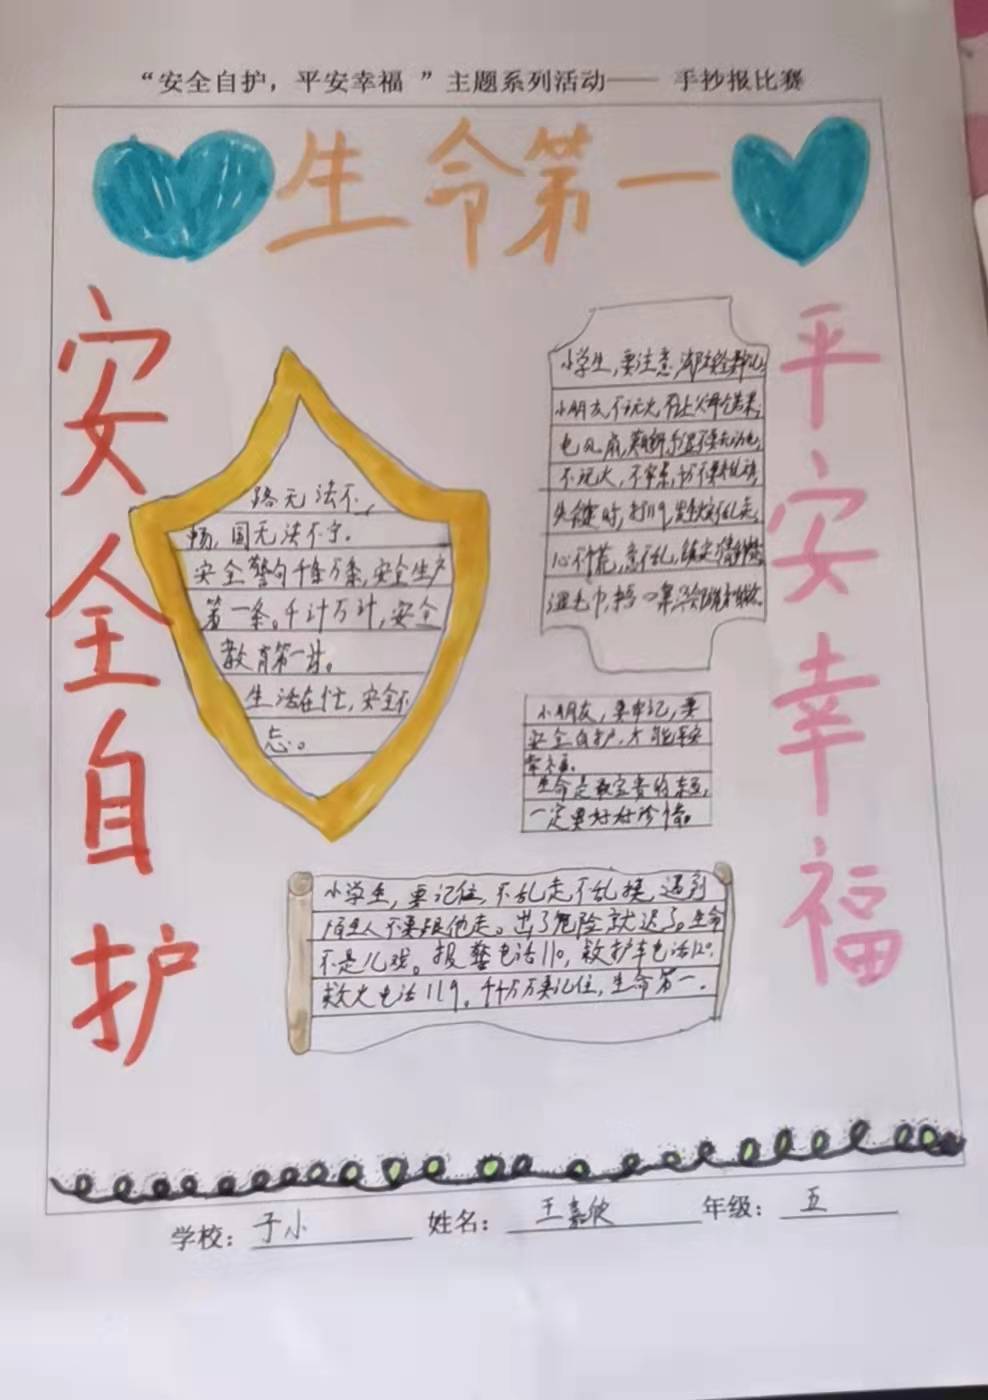 “安全自护，平安幸福 ”主题系列活动—— 手抄报比赛
生命第一
安全自护
平安幸福
路无法不
畅，国无法不宁。
安全警句千条万条，安全生产
第一条。千计万计，安全
教育第一计。
生活在忙，安全不
忘。
小学生，要注意，
小朋友，不玩火，
电风扇，
不玩火，不
失 时，打119，
心不慌，意不乱，
湿毛巾，捂口鼻，
小朋友，要牢记，要
安全自护，才能平安
幸福。
生命是最宝贵的东西，
一定要好好珍惜。
小学生，要记住，不乱走不乱摸，遇到
陌生人不要跟他走。出了危险就迟了。生命
不是儿戏。报警电话110，救护车电话120.
救火电话119。千千万万要记住，生命第一.
学校：于小 姓名：王嘉欣 年级：五